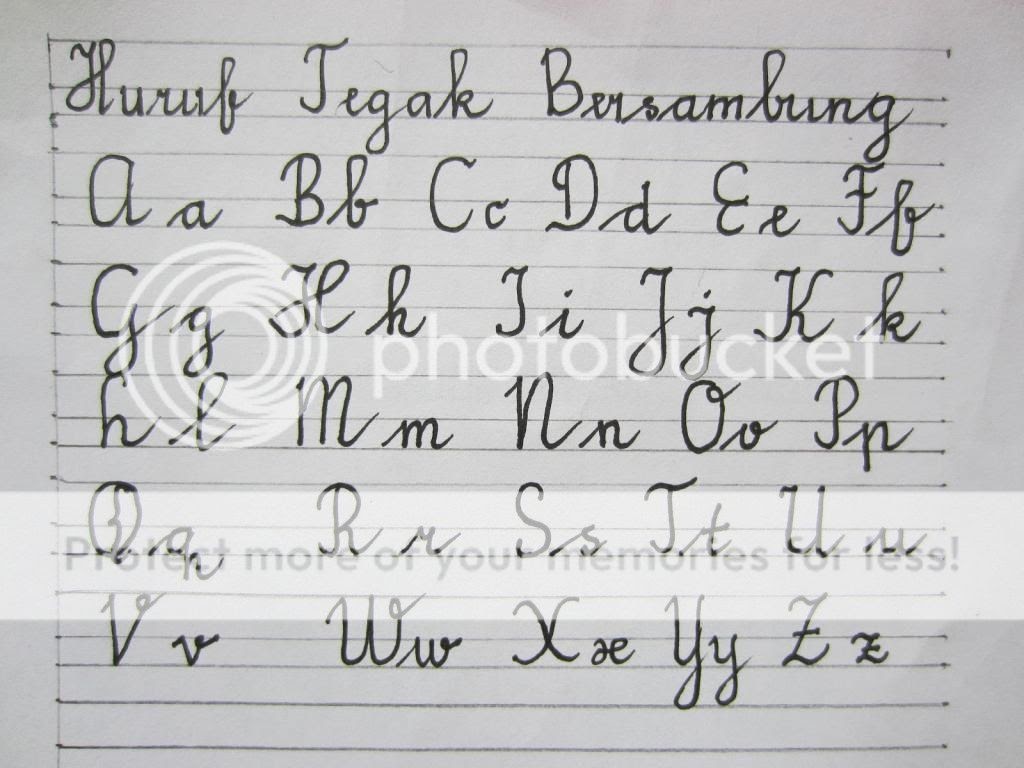 Huruf Tegak Bersambung
A a Bb Cc Dd Ee Ff
G g H h I i Jj K k
h l M m N n Oo Pp
Q q R r S s T t U u
V v Ww Xx Yy Z z
photobucket
Protect more of your memories for less!